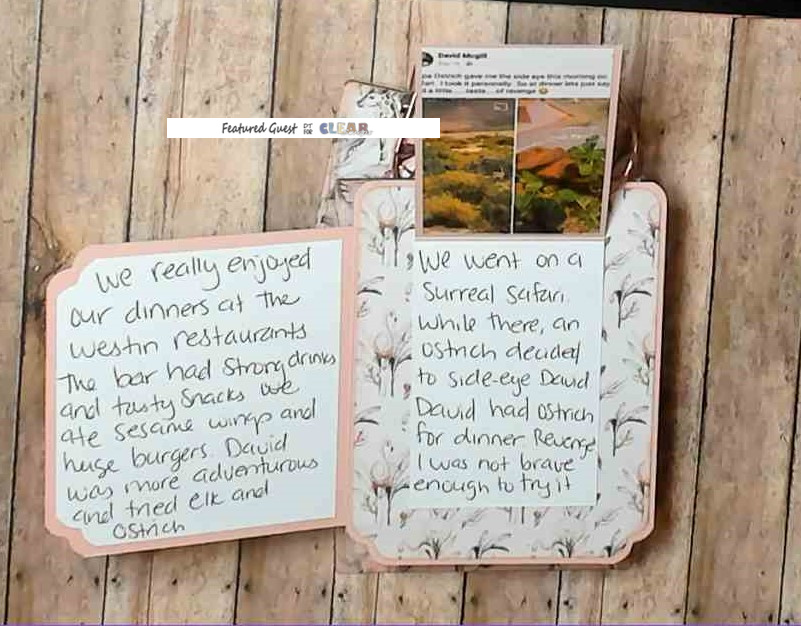 Featured Guest DT FOR CLEAR
David Mcgill
Ostrich gave me the side eye this morning on
I took it personally. So at dinner lets just say
a little.....taste....of revenge
We really enjoyed
our dinners at the
Westin restaurants
The bar had strong drinks
and tasty snacks we
ate sesame wings and
huge burgers. David
was more adventurous
and tried elk and
ostrich
We went on a
Surreal Safari.
While there, an
ostrich decided
to side-eye David
David had ostrich
for dinner Revenge
I was not brave
enough to try it